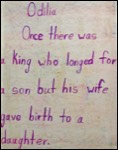 Odilia
Once there was
a king who longed for
a son but his wife
gave birth to a
daughter.